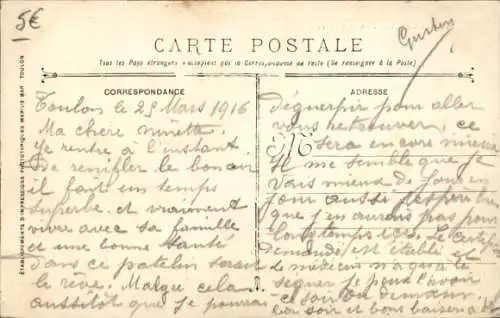 5€
Gusten
CARTE POSTALE
Tous les Pays étrangers n'acceptent pas la Correspondance au recto (Se renseigner à la Poste)
CORRESPONDANCE
Toulon le 29 Mars 1916
Ma chère minette.
Je rentre à l'instant
De renifler le bon air
il fait un temps
superbe. et vraiment
vivre avec sa famille
et une bonne santé
dans ce patelin serait
le rêve. Malgré cela
aussitôt que je pourrai
ADRESSE
Déguerpir pour aller
vous retrouver, ce
sera encore mieux
Il me semble que je
vais mieux de jour en
jour aussi j'espère bien
que j'en aurais pas pour
longtemps ici. Le certificat
demandé est établi et
le médecin n'a qu'à le
signer je pense l'avoir
ce soir ou demain.
bon soir et bons baisers à
ÉTABLISSEMENTS D'IMPRESSIONS PHOTOTYPIQUES MARIUS BAR TOULON